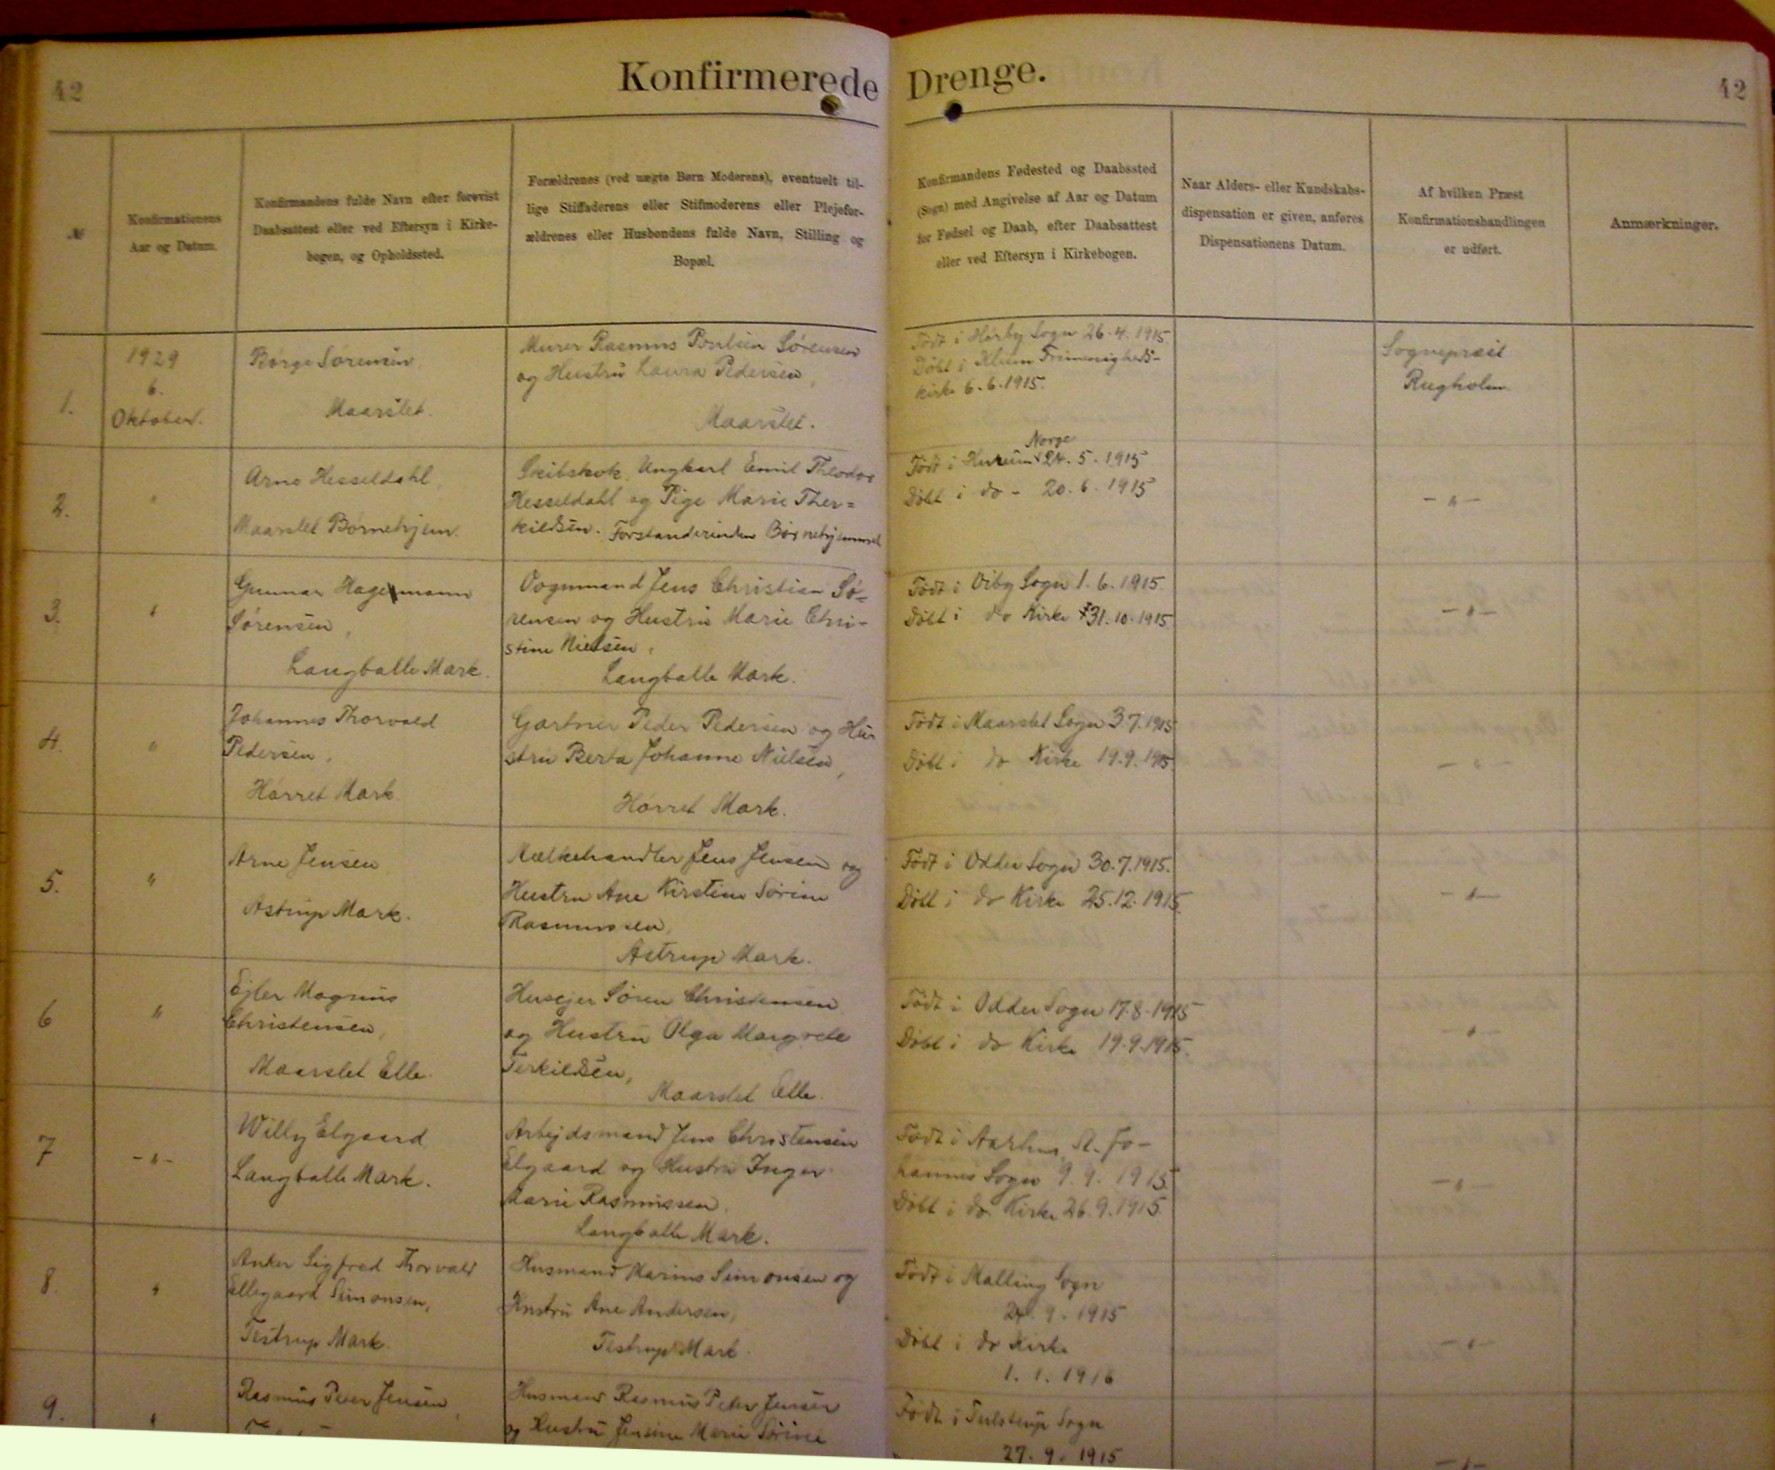 42
Konfirmerede Drenge.
42
№
Konfirmationens
Aar og Datum.
Konfirmandens fulde Navn efter forevist
Daabsattest eller ved Eftersyn i Kirke-
bogen, og Opholdssted.
Forældrenes (ved uægte Børn Moderens), eventuelt til-
lige Stiffaderens eller Stifmoderens eller Plejefor-
ældrenes eller Husbondens fulde Navn, Stilling og
Bopæl.
Konfirmandens Fødested og Daabssted
(Sogn) med Angivelse af Aar og Datum
for Fødsel og Daab, efter Daabsattest
eller ved Eftersyn i Kirkebogen.
Naar Alders- eller Kundskabs-
dispensation er given, anføres
Dispensationens Datum.
Af hvilken Præst
Konfirmationshandlingen
er udført.
Anmærkninger.
1.
1929
6.
Oktober.
Børge Sørensen,
Maarslet.
Murer Rasmus Poulsen Sørensen
og Hustru Laura Pedersen,
Maarslet.
Født i Hørby Sogn 26.4.1915
Døbt i Klim Frimenigheds-
kirke 6.6.1915.
Sognepræst
Rugholm
2.
"
Arno Hesseldahl,
Maarslet Børnehjem.
Skibskok, Ungkarl Emil Theodor
Hesseldahl og Pige Marie Ther=
kildsen. Forstanderinden Børnehjemmet
Norge
Født i Hurum 24.5.1915
Døbt i do - 20.6.1915
- " -
3.
"
Gunnar Hagemann
Sørensen,
Langballe Mark.
Vognmand Jens Christian Sø-
rensen og Hustru Marie Chri-
stine Nielsen,
Langballe Mark.
Født i Viby Sogn 1.6.1915.
Døbt i do Kirke 31.10.1915
- " -
4.
"
Johannes Thorvald
Pedersen,
Hørret Mark
Gartner Peder Pedersen og Hu-
stru Berta Johanne Nielsen,
Hørret Mark.
Født i Maarslet Sogn 3.7.1915
Døbt i do Kirke 19.9.1915
- " -
5.
"
Arne Jensen
Astrup Mark.
Mælkehandler Jens Jensen og
Hustru Ane Kirstine Sørine
Rasmussen,
Astrup Mark.
Født i Odder Sogn 30.7.1915.
Døbt i do Kirke 25.12.1915.
- " -
6
"
Ejler Magnus
Christensen,
Maarslet Elle.
Husejer Søren Christensen
og Hustru Olga Margrete
Terkildsen,
Maarslet Elle.
Født i Odder Sogn 17.8.1915
Døbt i do Kirke 19.9.1915.
- " -
7
- " -
Willy Elgaard
Langballe Mark.
Arbejdsmand Jens Christensen
Elgaard og Hustru Inger
Marie Rasmussen.
Langballe Mark.
Født i Aarhus, St. Jo-
hannes Sogn 9.9.1915
Døbt i do. Kirke 26.9.1915.
- " -
8.
"
Anker Sigfred Thorvald
Ellegaard Simonsen,
Testrup Mark.
Husmand Marius Simonsen og
Hustru Ane Andersen,
Testrup Mark.
Født i Malling Sogn
24.9.1915
Døbt i do Kirke
1.1.1916
- " -
9.
"
Rasmus Peter Jensen,
Husmand Rasmus Peter Jensen
og Hustru Jensine Marie Sørine
Født i Tulstrup Sogn
27.9.1915
- " -